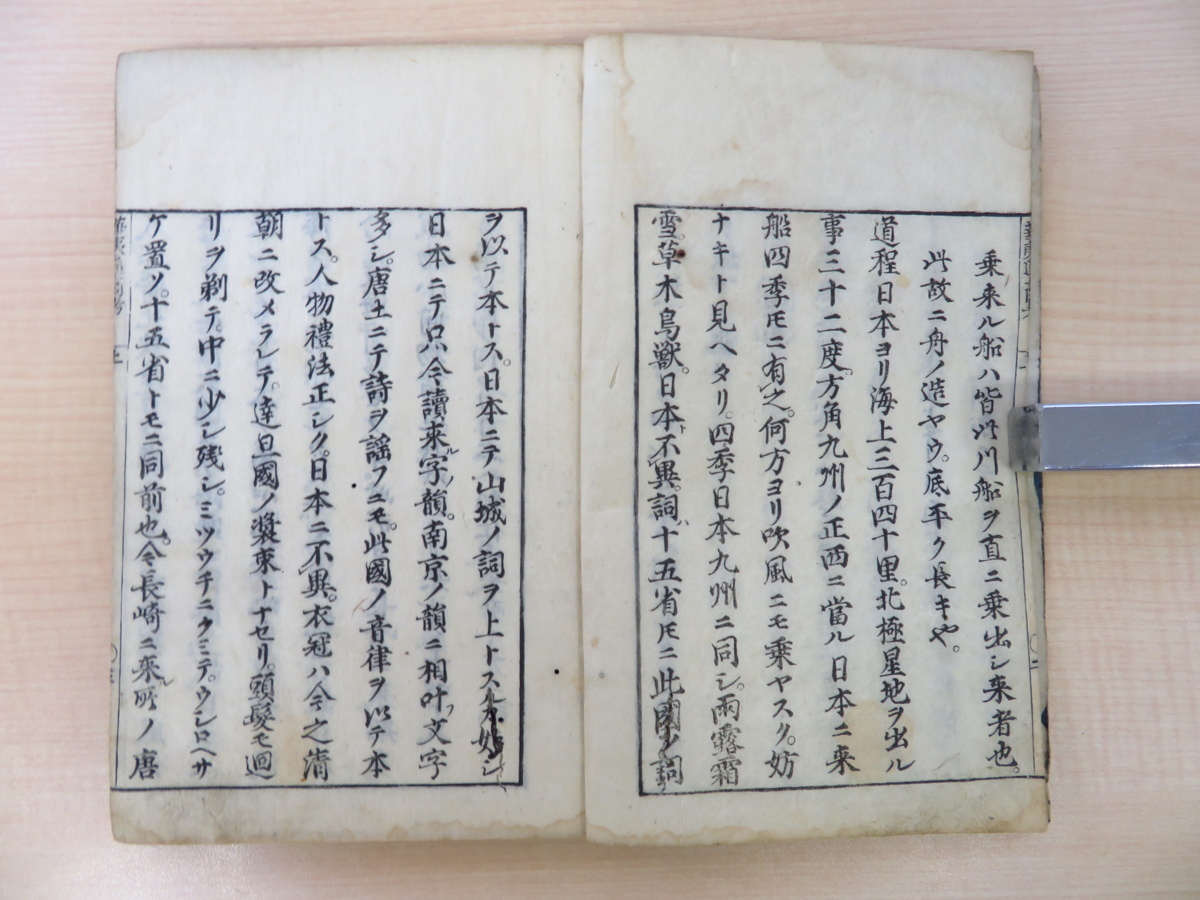 乗来ル船ハ皆此川船ヲ直ニ乗出シ来者也。
此故ニ舟ノ造ヤウ。底平ク長キや。
道程日本ヨリ海上三百四十里。北極星地ヲ出ル
事三十二度。方角九州ノ正西ニ當ル日本ニ来
船四季𪜈ニ有之。何方ヨリ吹風ニモ乗ヤスク。妨
ナキト見ヘタリ。四季日本九州ニ同シ。雨露霜
雪。草木鳥獣。日本ト不異。詞ハ十五省𪜈ニ此國ノ詞
ヲ以テ本トス。日本ニテ山城ノ詞ヲ上トス如シ
日本ニテ只今讀来ル字ノ韻。南京ノ韻ニ相叶フ文字
多シ。唐土ニテ詩ヲ謡フニモ。此國ノ音律ヲ以テ本
トス。人物禮法正シク。日本ニ不異。衣冠ハ今之清
朝ニ改メラレテ。達旦國ノ裝束トナセリ。頭髪モ廻
リヲ剃テ。中ニ少シ残シ。ミツウチニクミテ。ウシロヘサ
ケ置ソ。十五省トモニ同前也。今長崎ニ来ル所ノ唐